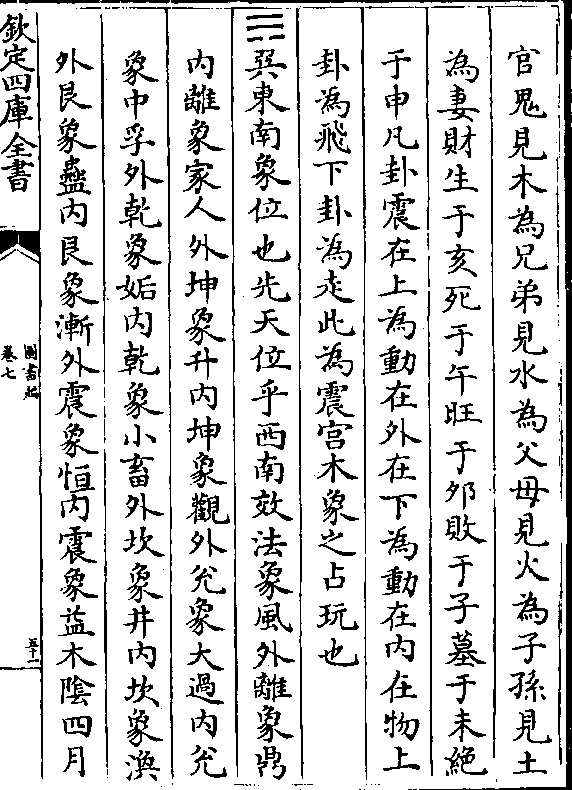 官鬼見木為兄弟見水為父母見火為子孫見土
為妻財生于亥死于午旺于夘敗于子墓于未絶
于申凡卦震在上為動在外在下為動在内在物上
卦為飛下卦為走此為震宫木象之占玩也
☴巽東南象位也先天位乎西南效法象風外離象鼎
内離象家人外坤象升内坤象觀外兊象大過内兊
象中孚外乾象姤内乾象小畜外坎象井内坎象渙
外艮象蠱内艮象漸外震象恒内震象益木隂四月
欽定四庫全書
圖書編
卷七
五十一